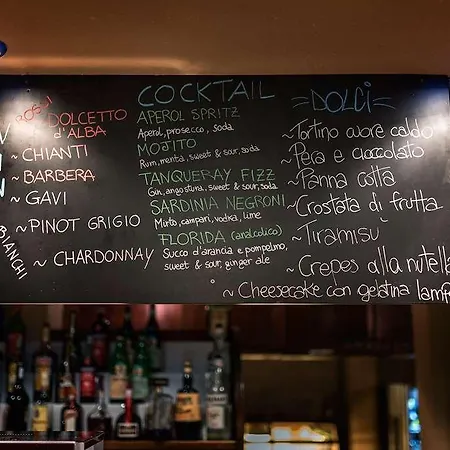 ROSSI
DOLCETTO
d'ALBA
~ CHIANTI
~ BARBERA
~ GAVI
~ PINOT GRIGIO
BIANCHI
~ CHARDONNAY
COCKTAIL
APEROL SPRITZ
Aperol, prosecco, soda
MOJITO
Rum, menta, sweet & sour, soda
TANQUERAY FIZZ
Gin, angostina, sweet & sour, soda
SARDINIA NEGRONI
Mirto, campari, vodka, lime
FLORIDA (analcolico)
Succo d'arancia e pompelmo,
sweet & sour, ginger ale
=DOLCI=
~ Tortino cuore caldo
~ Pera e cioccolato
~ Panna cotta
~ Crostata di frutta
~ Tiramisu
~ Crepes alla nutella
~ Cheesecake con gelatina